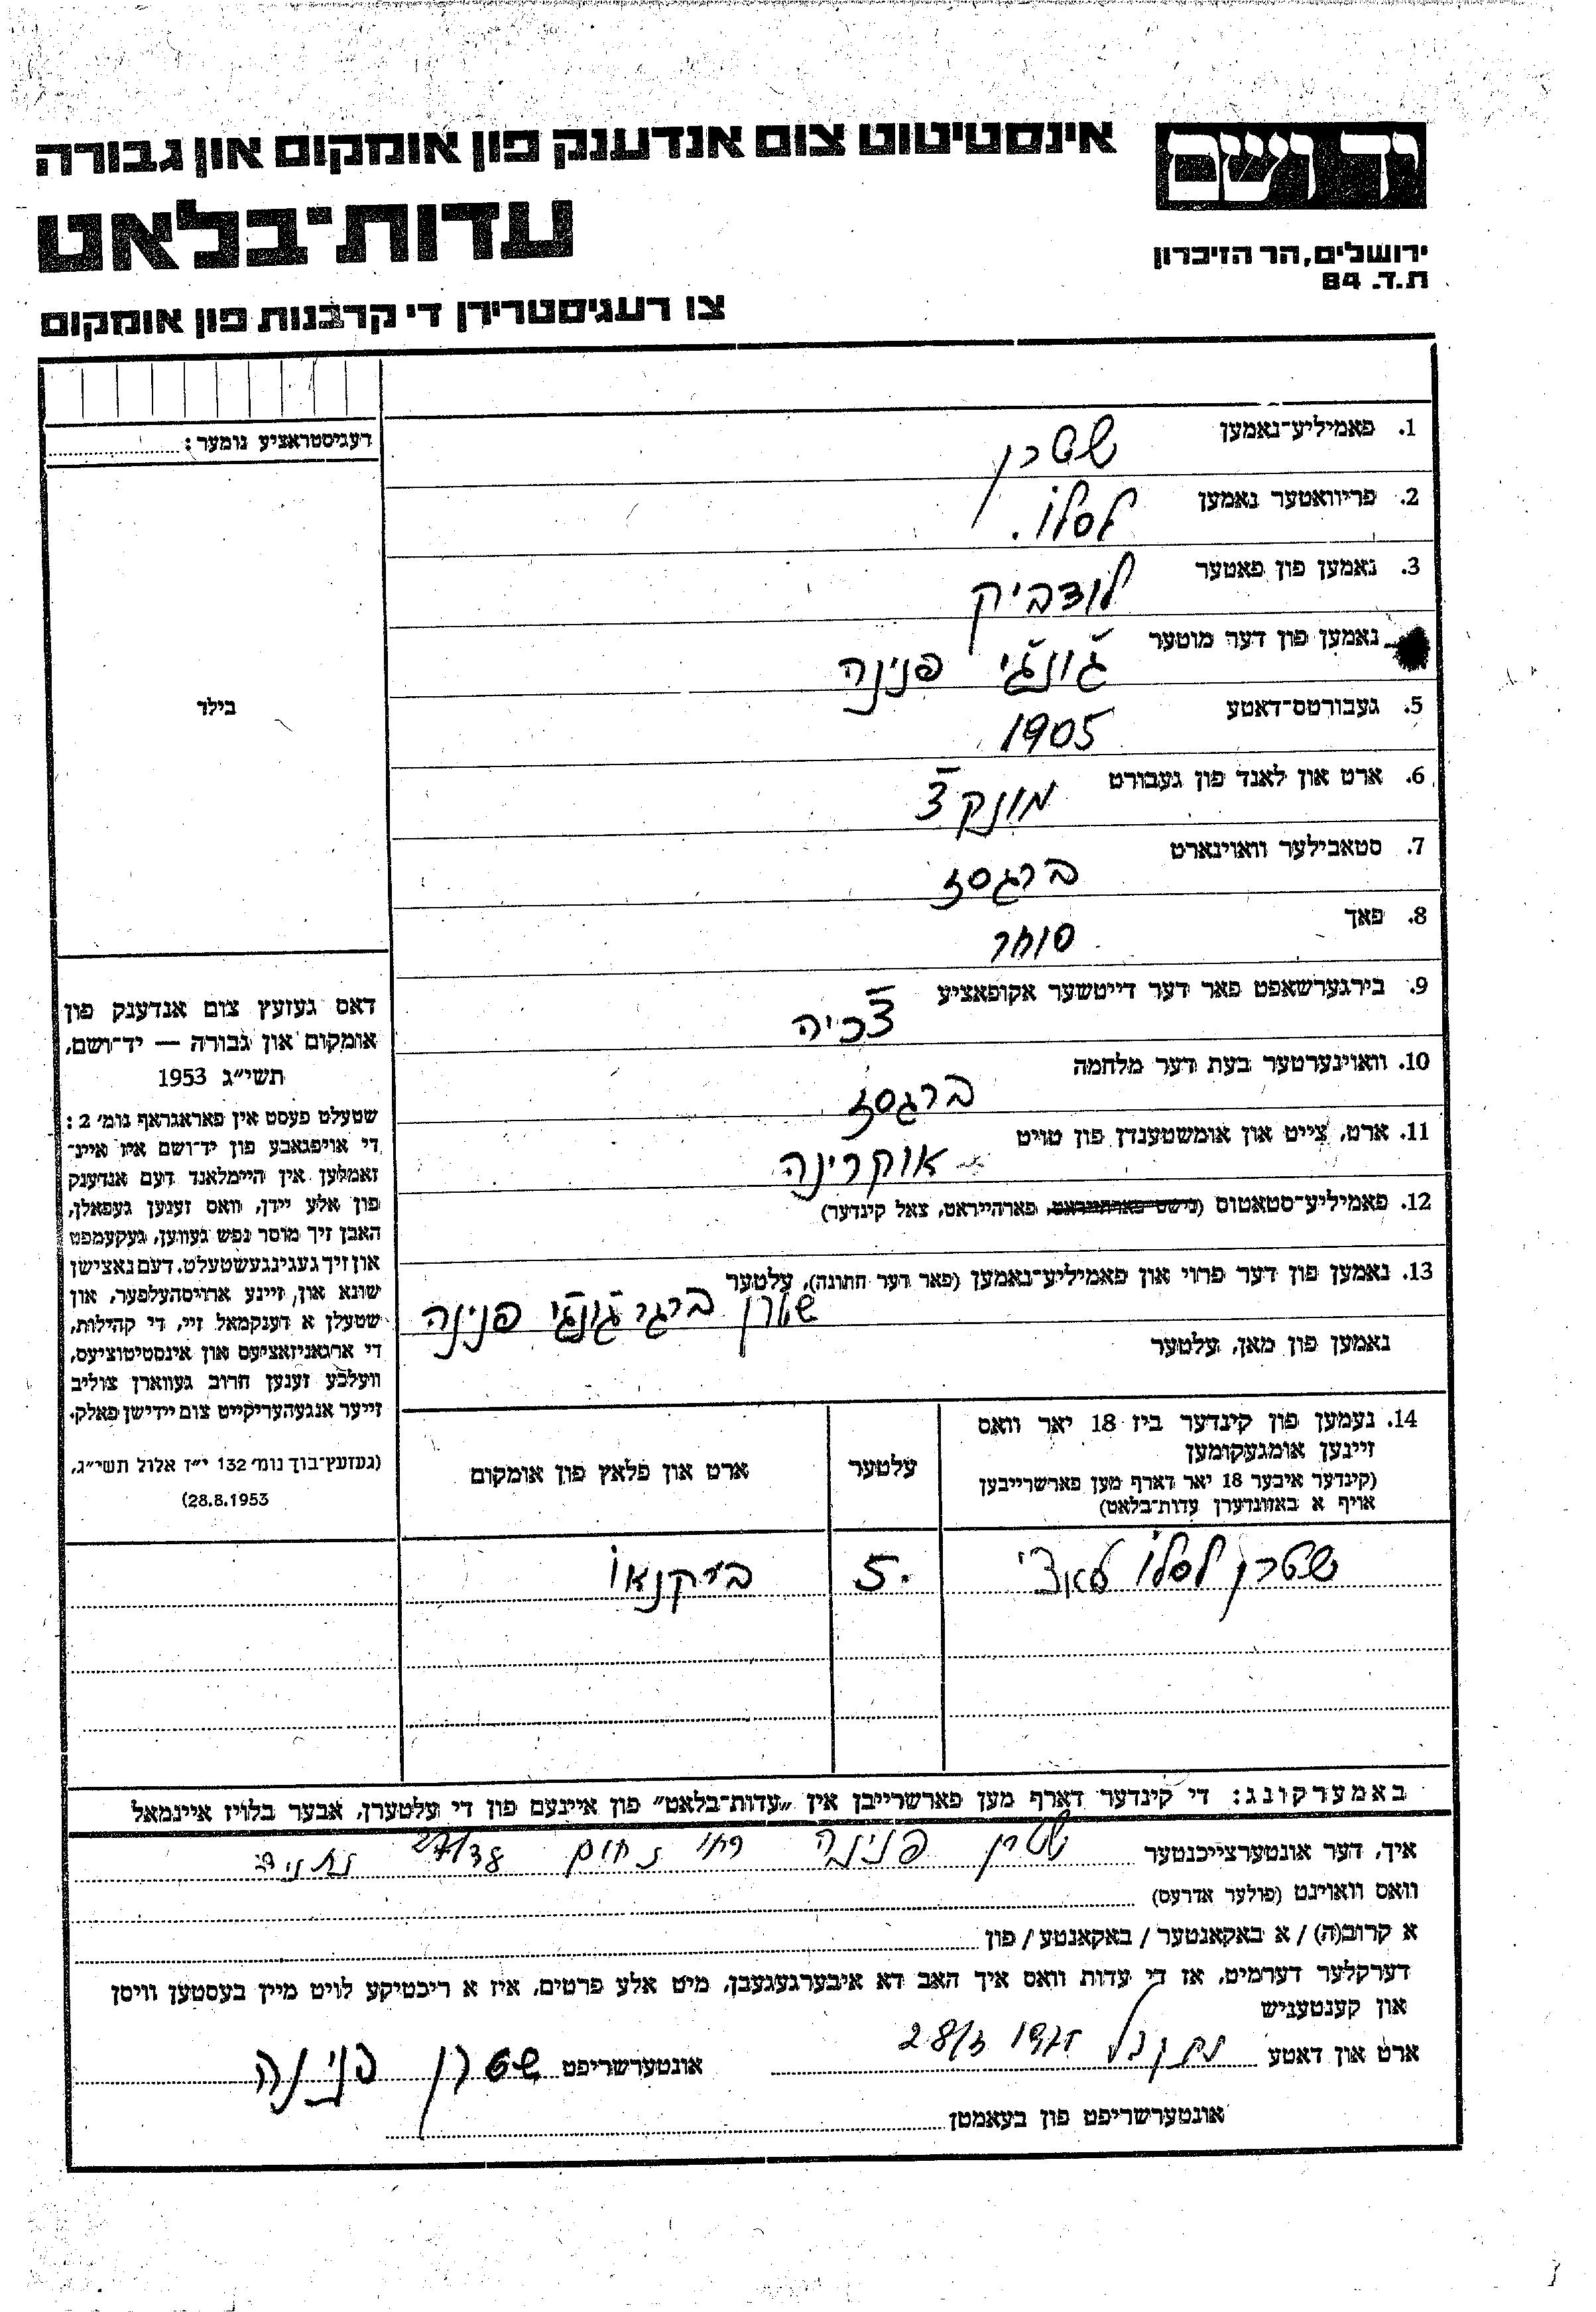 יד ושם
אינסטיטוט צום אנדענק פון אומקום און גבורה
עדות־בלאט
ירושלים, הר הזיכרון
ת.ד. 84
צו רעגיסטרירן די קרבנות פון אומקום
רעגיסטראציע נומער:
בילד
1. פאמיליע־נאמען שטרן
2. פריוואטער נאמען לסלו.
3. נאמען פון פאטער לודביק
נאמען פון דער מוטער ג'ונג'י פנינה
5. געבורטס־דאטע 1905
6. ארט און לאנד פון געבורט מונקצ'
7. סטאבילער וואוינארט ברגסז
8. פאך סוחר
9. בירגערשאפט פאר דער דייטשער אקופאציע צ'כיה
10. וואוינערטער בעת דער מלחמה ברגסז
11. ארט, צייט און אומשטענדן פון טויט אוקרינה
12. פאמיליע־סטאטוס (נישט פארהייראט, פארהייראט, צאל קינדער)
13. נאמען פון דער פרוי און פאמיליע־נאמען (פאר דער חתונה), עלטער
שטרן ברגר ג'ונג'י פנינה
נאמען פון מאן, עלטער
דאס געזעץ צום אנדענק פון
אומקום און גבורה — יד־ושם,
תשי"ג 1953
שטעלט פעסט אין פאראגראף נומ' 2:
די אויפגאבע פון יד־ושם איז איינ־
זאמלען אין היימלאנד דעם אנדענק
פון אלע יידן, וואס זענען געפאלן,
האבן זיך מוסר נפש געווען, געקעמפט
און זיך געגינגעשטעלט. דעם נאצישן
שונא און זיינע ארויסהעלפער, און
שטעלן א דענקמאל זיי, די קהילות,
די ארגאניזאציעס און אינסטיטוציעס,
וועלכע זענען חרוב געווארן צוליב
זייער אנגעהעריקייט צום יידישן פאלק.
(געזעץ־בוך נומ' 132 י"ז אלול תשי"ג,
28.8.1953)
14. נעמען פון קינדער ביז 18 יאר וואס
זיינען אומגעקומען
(קינדער איבער 18 יאר דארף מען פארשרייבן
אויף א באזונדערן עדות־בלאט)
עלטער
ארט און פלאץ פון אומקום
שטרן לסלו 5. בירקנאו
באמערקונג: די קינדער דארף מען פארשרייבן אין „עדות־בלאט" פון איינעם פון די עלטערן, אבער בלויז איינמאל
איך, דער אונטערצייכנטער שטרן פנינה רח' נחום 27/38 נתניה
וואס וואוינט (פולער אדרעס)
א קרוב(ה) / א באקאנטער / באקאנטע / פון
דערקלער דערמיט, אז די עדות וואס איך האב דא איבערגעגעבן, מיט אלע פרטים, איז א ריכטיקע לויט מיין בעסטען וויסן
און קענטעניש
ארט און דאטע אונטערשריפט שטרן פנינה
אונטערשריפט פון בעאמטן